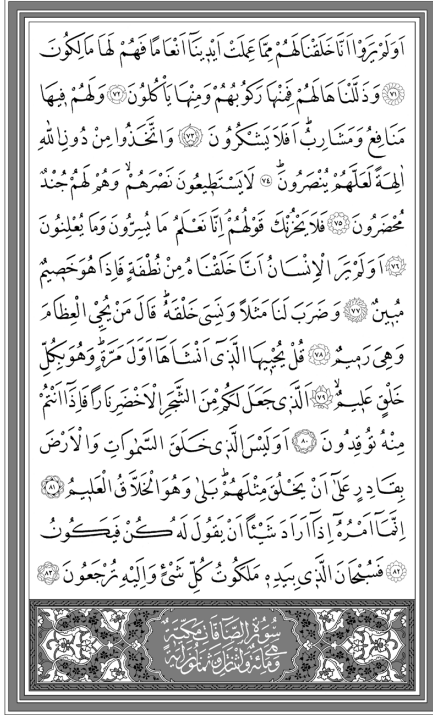 اَوَلَمْ يَرَوْا اَنَّا خَلَقْنَا لَهُمْ مِمَّا عَمِلَتْ اَيْدٖينَٓا اَنْعَامًا فَهُمْ لَهَا مَالِكُونَ
﴿٧١﴾ وَذَلَّلْنَاهَا لَهُمْ فَمِنْهَا رَكُوبُهُمْ وَمِنْهَا يَأْكُلُونَ ﴿٧٢﴾ وَلَهُمْ فٖيهَا
مَنَافِعُ وَمَشَارِبُۜ اَفَلَا يَشْكُرُونَ ﴿٧٣﴾ وَاتَّخَذُوا مِنْ دُونِ اللّٰهِ
اٰلِهَةً لَعَلَّهُمْ يُنْصَرُونَۜ ﴿٧٤﴾ لَا يَسْتَطٖيعُونَ نَصْرَهُمْۙ وَهُمْ لَهُمْ جُنْدٌ
مُحْضَرُونَ ﴿٧٥﴾ فَلَا يَحْزُنْكَ قَوْلُهُمْۢ اِنَّا نَعْلَمُ مَا يُسِرُّونَ وَمَا يُعْلِنُونَ
﴿٧٦﴾ اَوَلَمْ يَرَ الْاِنْسَانُ اَنَّا خَلَقْنَاهُ مِنْ نُطْفَةٍ فَاِذَا هُوَ خَصٖيمٌ
مُبٖينٌ ﴿٧٧﴾ وَضَرَبَ لَنَا مَثَلًا وَنَسِيَ خَلْقَهُۜ قَالَ مَنْ يُحْيِ الْعِظَامَ
وَهِيَ رَمٖيمٌ ﴿٧٨﴾ قُلْ يُحْيٖيهَا الَّذٖٓي اَنْشَاَهَٓا اَوَّلَ مَرَّةٍۜ وَهُوَ بِكُلِّ
خَلْقٍ عَلٖيمٌۙ ﴿٧٩﴾ اَلَّذٖي جَعَلَ لَكُمْ مِنَ الشَّجَرِ الْاَخْضَرِ نَارًا فَاِذَٓا اَنْتُمْ
مِنْهُ تُوقِدُونَ ﴿٨٠﴾ اَوَلَيْسَ الَّذٖي خَلَقَ السَّمٰوَاتِ وَالْاَرْضَ
بِقَادِرٍ عَلٰٓى اَنْ يَخْلُقَ مِثْلَهُمْۜ بَلٰى وَهُوَ الْخَلَّاقُ الْعَلٖيمُ ﴿٨١﴾
اِنَّمَٓا اَمْرُهُٓ اِذَٓا اَرَادَ شَيْـًٔا اَنْ يَقُولَ لَهُ كُنْ فَيَكُونُ
﴿٨٢﴾ فَسُبْحَانَ الَّذٖي بِيَدِهٖ مَلَكُوتُ كُلِّ شَيْءٍ وَاِلَيْهِ تُرْجَعُونَ ﴿٨٣﴾
سُورَةُ الصَّٓافَّاتِ مَكِّيَّةٌ